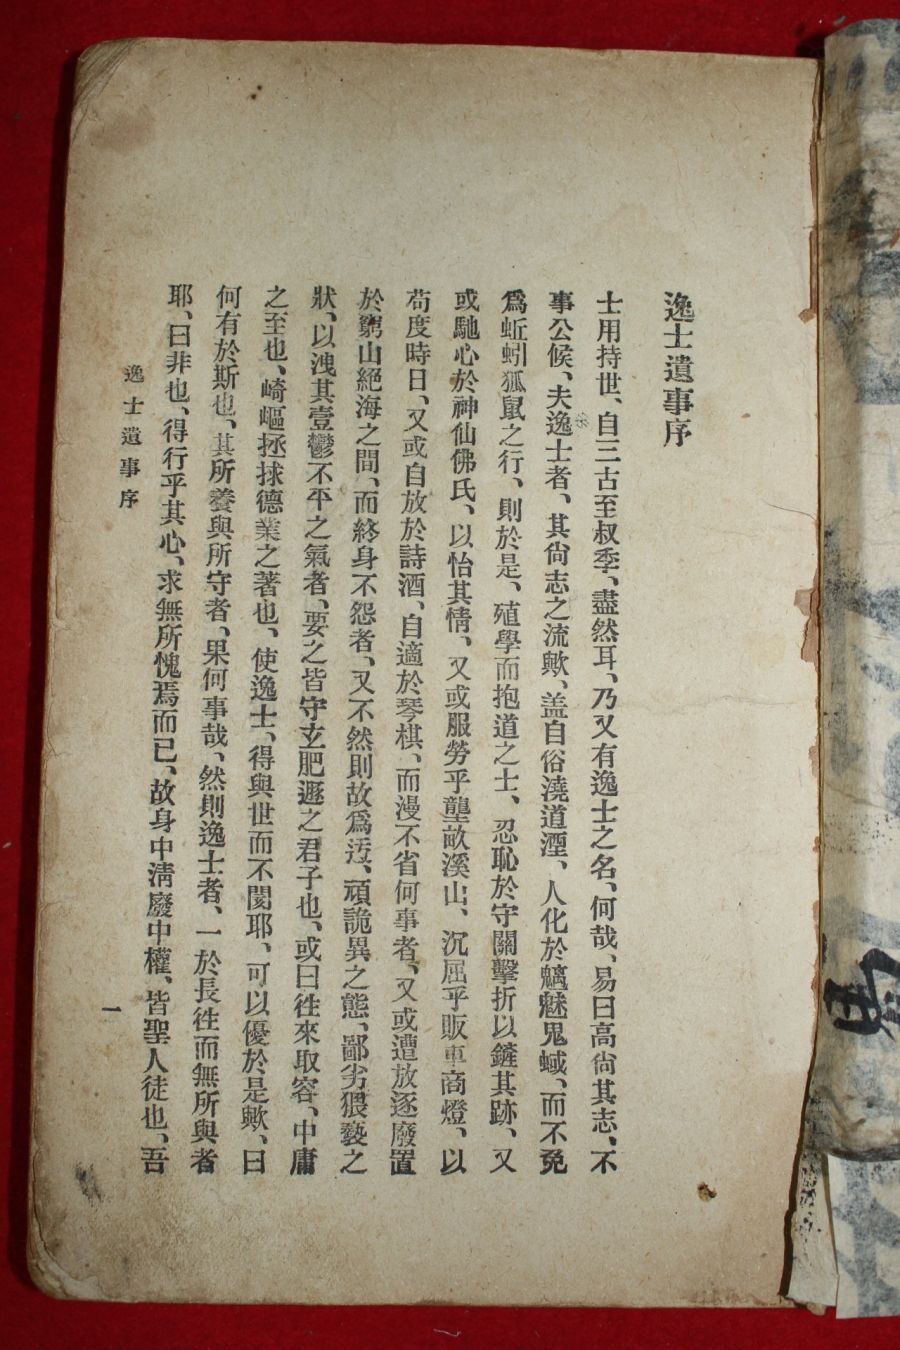 逸士遺事序
士用持世、自三古至叔季、盡然耳、乃又有逸士之名、何哉、易曰高尙其志、不
事公候、夫逸士者、其尙志之流歟、盖自俗澆道湮、人化於魑魅鬼蜮、而不免
爲蚯蚓狐鼠之行、則於是、殖學而抱道之士、忍恥於守關擊折以鏟其跡、又
或馳心於神仙佛氏、以怡其情、又或服勞乎壟畝溪山、沉屈乎販車商燈、以
苟度時日、又或自放於詩酒、自適於琴棋、而漫不省何事者、又或遭放逐廢置
於窮山絕海之間、而終身不怨者、又不然則故爲汚、頑詭異之態、鄙劣猥褻之
狀、以洩其壹鬱不平之氣者、要之皆守玄肥遯之君子也、或曰徃來取容、中庸
之至也、崎嶇拯捄德業之著也、使逸士、得與世而不閡耶、可以優於是歟、曰
何有於斯也、其所養與所守者、果何事哉、然則逸士者、一於長徃而無所與者
耶、曰非也、得行乎其心、求無所愧焉而已、故身中淸廢中權、皆聖人徒也、吾
逸士遺事序
一